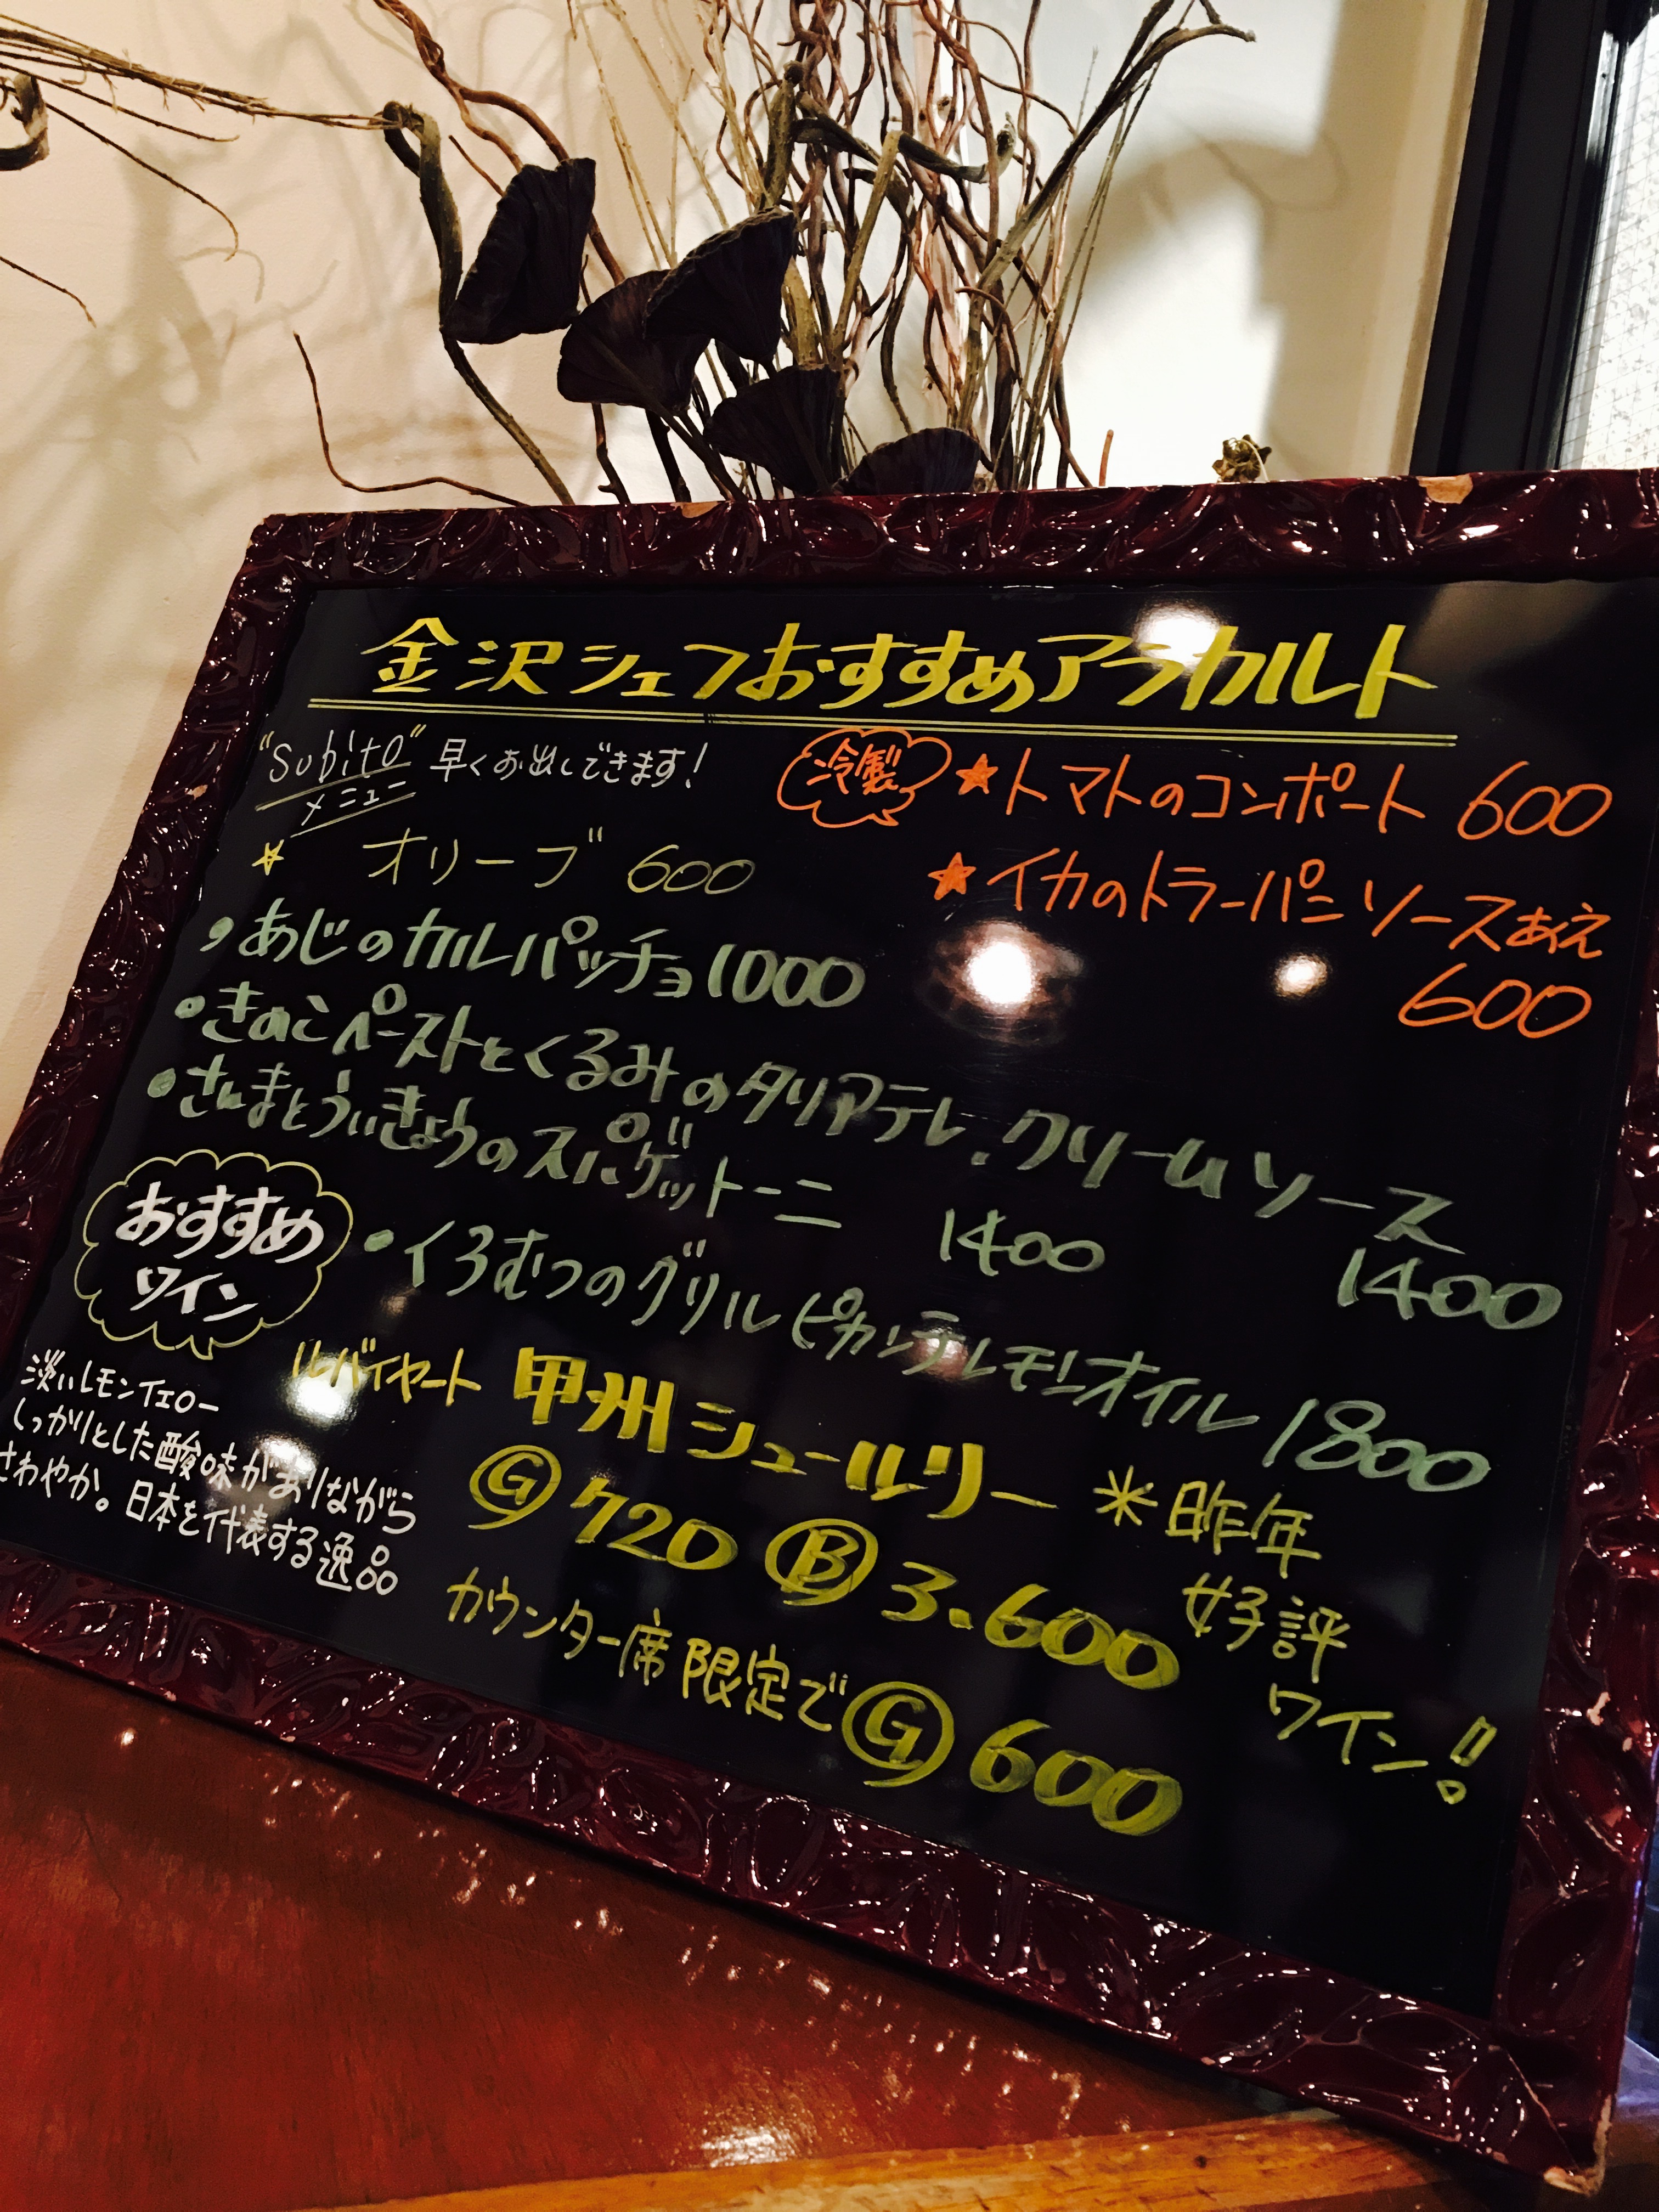 金沢シェフおすすめアラカルト
"Subito" 早くお出しできます!
メニュー
オリーブ 600
冷製
★トマトのコンポート 600
★イカのトラーパニソースあえ
600
・あじのカルパッチョ 1000
・きのこペーストとくるみのタリアテレ.クリームソース
1400
・さんまとういきょうのスパゲットーニ
1400
・イろむつのグリル ピカンテレモンオイル 1800
おすすめ
ワイン
ルバイヤート 甲州シュールリー
Ⓖ 720 Ⓑ 3.600
*昨年
好評
ワイン!!
カウンター席限定でⒼ 600
淡いレモンイエロー
しっかりとした酸味がありながら
さわやか。日本を代表する逸品